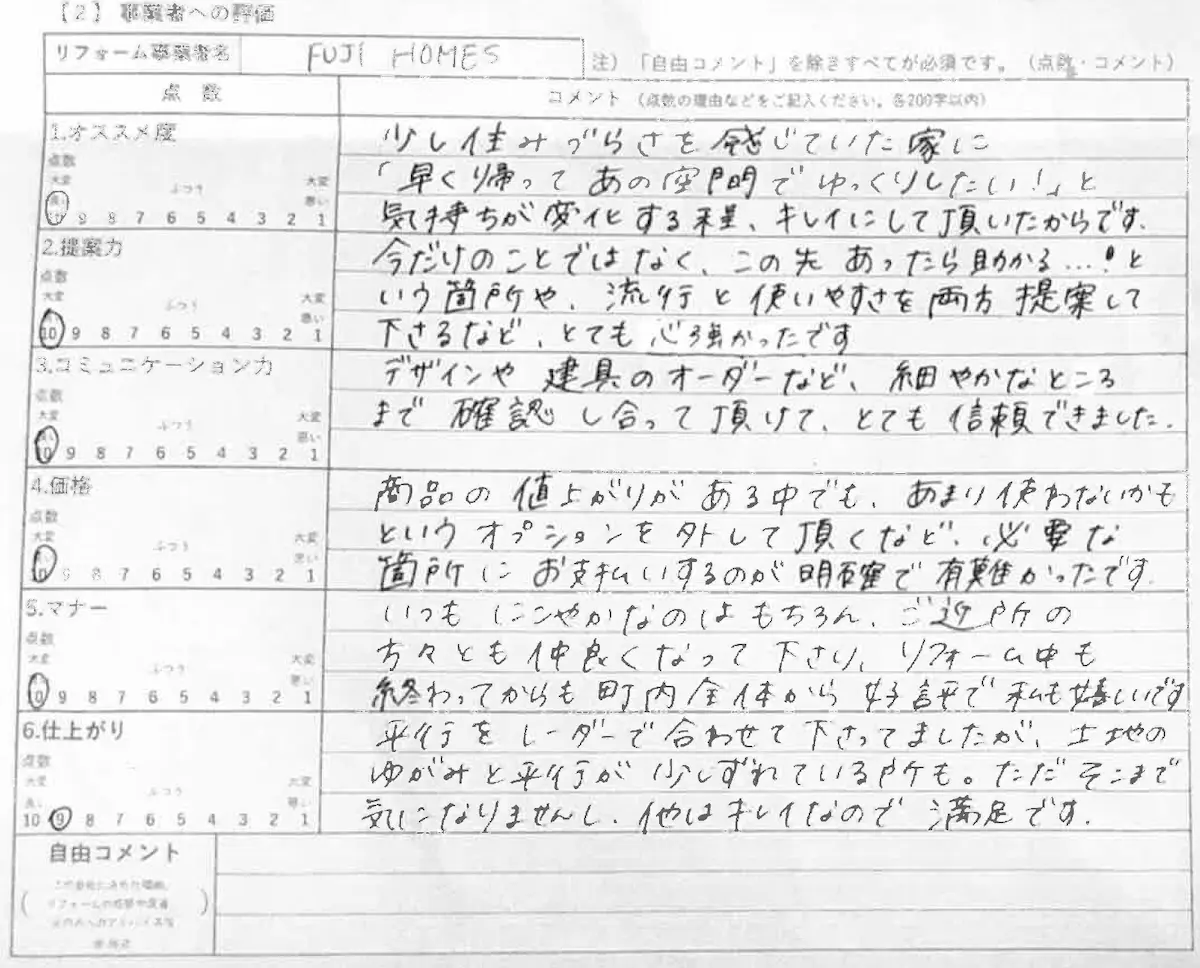 【2】事業者への評価
リフォーム事業者名 FUJI HOMES
注）「自由コメント」を除きすべてが必須です。（点数・コメント）
点 数
コメント（点数の理由などをご記入ください。各200字以内）
1.オススメ度
点数
大変 ふつう 大変
良い 悪い
10 9 8 7 6 5 4 3 2 1
少し住みづらさを感じていた家に
「早く帰って あの空間で ゆっくりしたい!」と
気持ちが変化する程、キレイにして頂いたからです.
2.提案力
点数
大変 ふつう 大変
悪い
10 9 8 7 6 5 4 3 2 1
今だけのことではなく、この先 あったら助かる…!と
いう箇所や、流行と使いやすさを両方提案して
下さるなど、とても 心強かったです
3.コミュニケーション力
点数
大変 ふつう 大変
良い 悪い
10 9 8 7 6 5 4 3 2 1
デザインや 建具のオーダーなど、細やかなところ
まで 確認し合って頂けて、とても信頼できました.
4.価格
点数
大変 ふつう 大変
良い 悪い
10 9 8 7 6 5 4 3 2 1
商品の値上がりがある中でも、あまり使わないかも
というオプションを外して頂くなど、必要な
箇所に お支払いするのが明確で有難かったです.
5.マナー
点数
大変 ふつう 大変
悪い
10 9 8 7 6 5 4 3 2 1
いつもにこやかなのはもちろん、ご近所の
方々とも仲良くなって下さり、リフォーム中も
終わってからも町内全体から 好評で私も嬉しいです
6.仕上がり
点数
大変 ふつう 大変
良い 悪い
10 9 8 7 6 5 4 3 2 1
平行をレーダーで合わせて下さってましたが、土地の
ゆがみと平行が少しずれている所も。ただそこまで
気になりませんし、他はキレイなので 満足です.
自由コメント